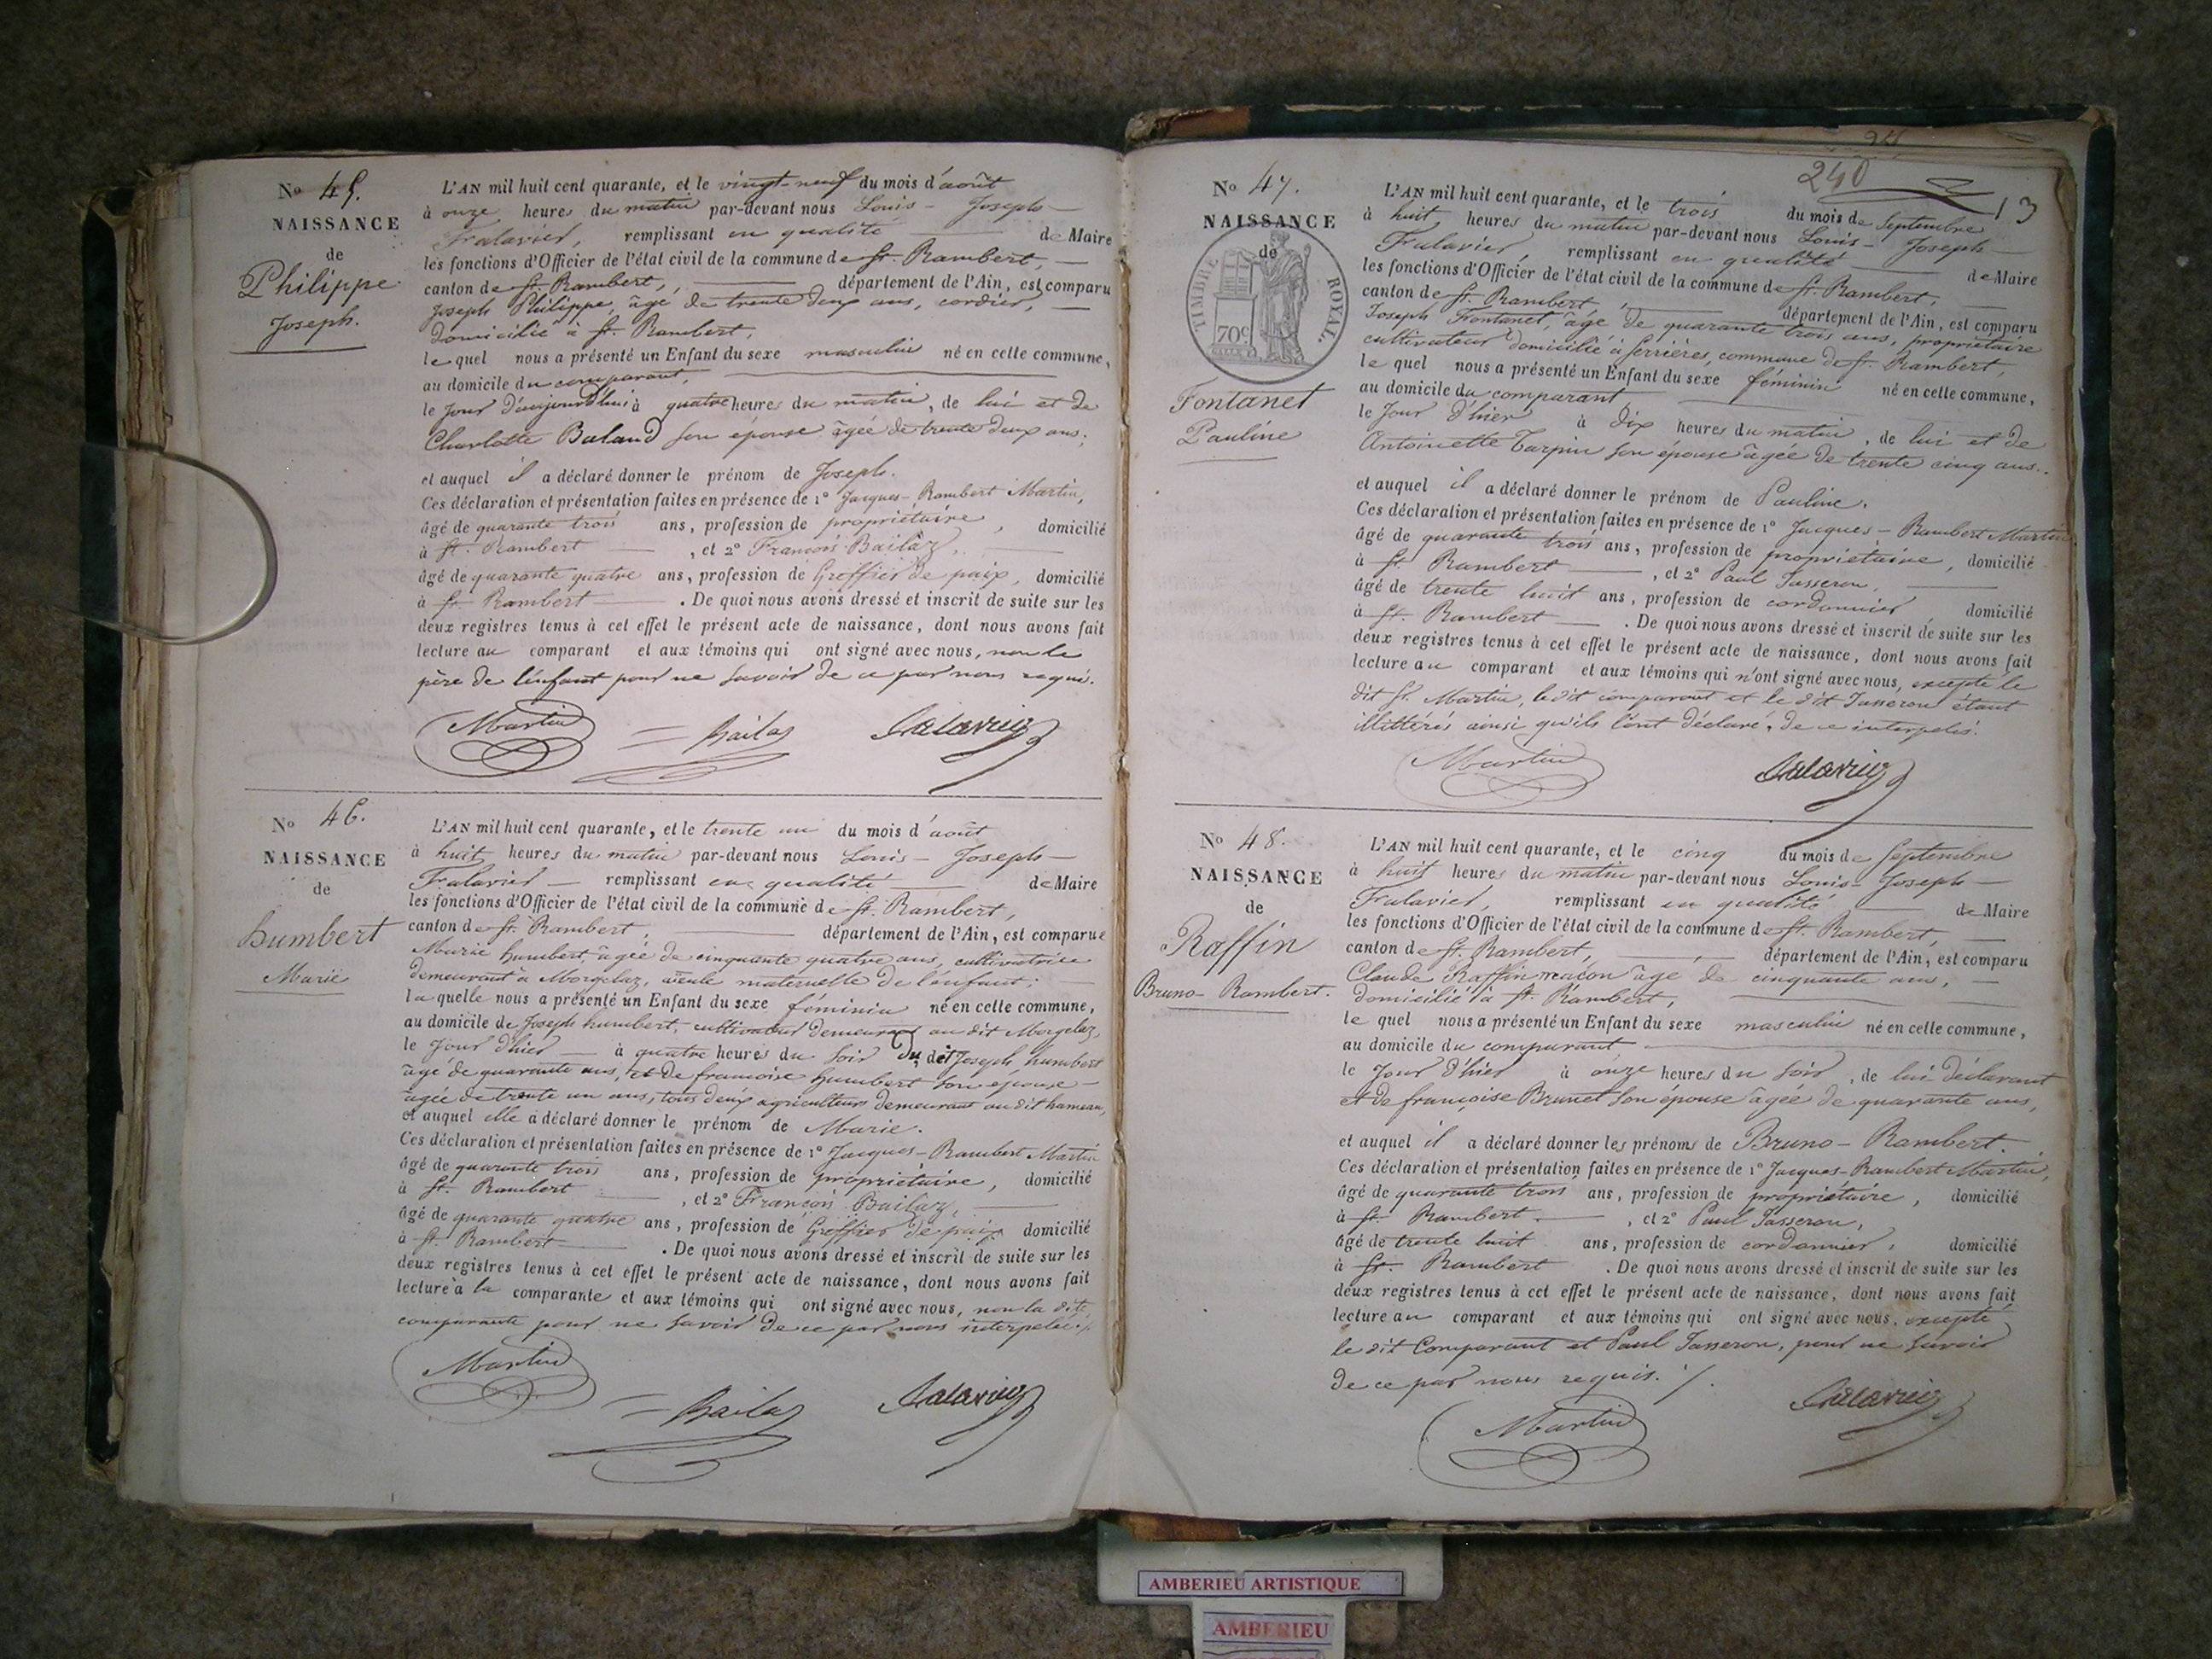 No 45.
NAISSANCE
de
Philippe
Joseph.
L'AN mil huit cent quarante, et le vingt-neuf du mois d'août
à onze heures du matin par-devant nous Louis - Joseph
Falavier, remplissant en qualité de Maire
les fonctions d'Officier de l'état civil de la commune de St. Rambert,
canton de St. Rambert, département de l'Ain, est comparu
Joseph Philippe, âgé de trente deux ans, cordier,
domicilié à St. Rambert,
le quel nous a présenté un Enfant du sexe masculin né en cette commune,
au domicile du comparant,
le jour d'aujourd'hui à quatre heures du matin, de lui et de
Charlotte Baland son épouse âgée de trente deux ans;
et auquel il a déclaré donner le prénom de Joseph.
Ces déclaration et présentation faites en présence de 1° Jacques-Rambert Martin,
âgé de quarante trois ans, profession de propriétaire, domicilié
à St. Rambert, et 2° François Bailaz,
âgé de quarante quatre ans, profession de Greffier de paix, domicilié
à St. Rambert. De quoi nous avons dressé et inscrit de suite sur les
deux registres tenus à cet effet le présent acte de naissance, dont nous avons fait
lecture au comparant et aux témoins qui ont signé avec nous, non le
père de l'enfant pour ne savoir de ce par nous requi.
Martin Bailaz Falavier
No 46.
NAISSANCE
de
humbert
Marie
L'AN mil huit cent quarante, et le trente un du mois d'août
à huit heures du matin par-devant nous Louis - Joseph -
Falavier remplissant en qualité de Maire
les fonctions d'Officier de l'état civil de la commune de St. Rambert,
canton de St. Rambert, département de l'Ain, est comparue
Marie humbert, âgée de cinquante quatre ans, cultivatrice
demeurant à Morgelaz, aïeule maternelle de l'enfant;
la quelle nous a présenté un Enfant du sexe féminin né en cette commune,
au domicile de Joseph humbert, cultivateur demeurant au dit Morgelaz,
le jour d'hier à quatre heures du soir du dit Joseph humbert
âgé de quarante ans, et de francoise humbert son épouse
âgée de trente un ans, tous deux agriculteurs demeurant au dit hameau,
et auquel elle a déclaré donner le prénom de Marie.
Ces déclaration et présentation faites en présence de 1° Jacques-Rambert Martin
âgé de quarante trois ans, profession de propriétaire, domicilié
à St. Rambert, et 2° François Bailaz,
âgé de quarante quatre ans, profession de Greffier de paix domicilié
à St. Rambert. De quoi nous avons dressé et inscrit de suite sur les
deux registres tenus à cet effet le présent acte de naissance, dont nous avons fait
lecture à la comparante et aux témoins qui ont signé avec nous, non la dite
comparante pour ne savoir de ce par nous interpelée./.
Martin Bailaz Falavier
240
13
No 47.
NAISSANCE
de
TIMBRE ROYAL.
70c
Fontanet
Pauline
L'AN mil huit cent quarante, et le trois du mois de Septembre
à huit heures du matin par-devant nous Louis - Joseph
Falavier, remplissant en qualité de Maire
les fonctions d'Officier de l'état civil de la commune de St. Rambert,
canton de St. Rambert, département de l'Ain, est comparu
Joseph Fontanet, âgé de quarante trois ans, propriétaire
cultivateur domicilié à Serrières, commune de St. Rambert,
le quel nous a présenté un Enfant du sexe féminin né en cette commune,
au domicile du comparant
le jour d'hier à dix heures du matin, de lui et de
Antoinette Tarpin son épouse âgée de trente cinq ans.
et auquel il a déclaré donner le prénom de Pauline.
Ces déclaration et présentation faites en présence de 1° Jacques - Rambert Martin
âgé de quarante trois ans, profession de propriétaire, domicilié
à St. Rambert, et 2° Paul Tasseron,
âgé de trente huit ans, profession de cordonnier domicilié
à St. Rambert. De quoi nous avons dressé et inscrit de suite sur les
deux registres tenus à cet effet le présent acte de naissance, dont nous avons fait
lecture au comparant et aux témoins qui n'ont signé avec nous, excepté le
dit Sr. Martin, le dit comparant et le dit Tasseron étant
illittérés ainsi qu'ils l'ont déclaré, de ce interpelés.
Martin Falavier
No 48.
NAISSANCE
de
Raffin
Bruno - Rambert.
L'AN mil huit cent quarante, et le cinq du mois de Septembre
à huit heures du matin par-devant nous Louis - Joseph
Falavier, remplissant en qualité de Maire
les fonctions d'Officier de l'état civil de la commune de St. Rambert,
canton de St. Rambert, département de l'Ain, est comparu
Claude Raffin maçon âgé de cinquante ans,
domicilié à St. Rambert,
le quel nous a présenté un Enfant du sexe masculin né en cette commune,
au domicile du comparant
le jour d'hier à onze heures du soir, de lui déclarant
et de françoise Brunet son épouse âgée de quarante ans,
et auquel il a déclaré donner les prénoms de Bruno - Rambert.
Ces déclaration et présentation faites en présence de 1° Jacques-Rambert Martin,
âgé de quarante trois ans, profession de propriétaire, domicilié
à St. Rambert, et 2° Paul Tasseron,
âgé de trente huit ans, profession de cordonnier, domicilié
à St. Rambert. De quoi nous avons dressé et inscrit de suite sur les
deux registres tenus à cet effet le présent acte de naissance, dont nous avons fait
lecture au comparant et aux témoins qui ont signé avec nous, excepté
le dit Comparant et Paul Tasseron, pour ne savoir
de ce par nous requis./.
Martin Falavier
AMBERIEU ARTISTIQUE
AMBERIEU